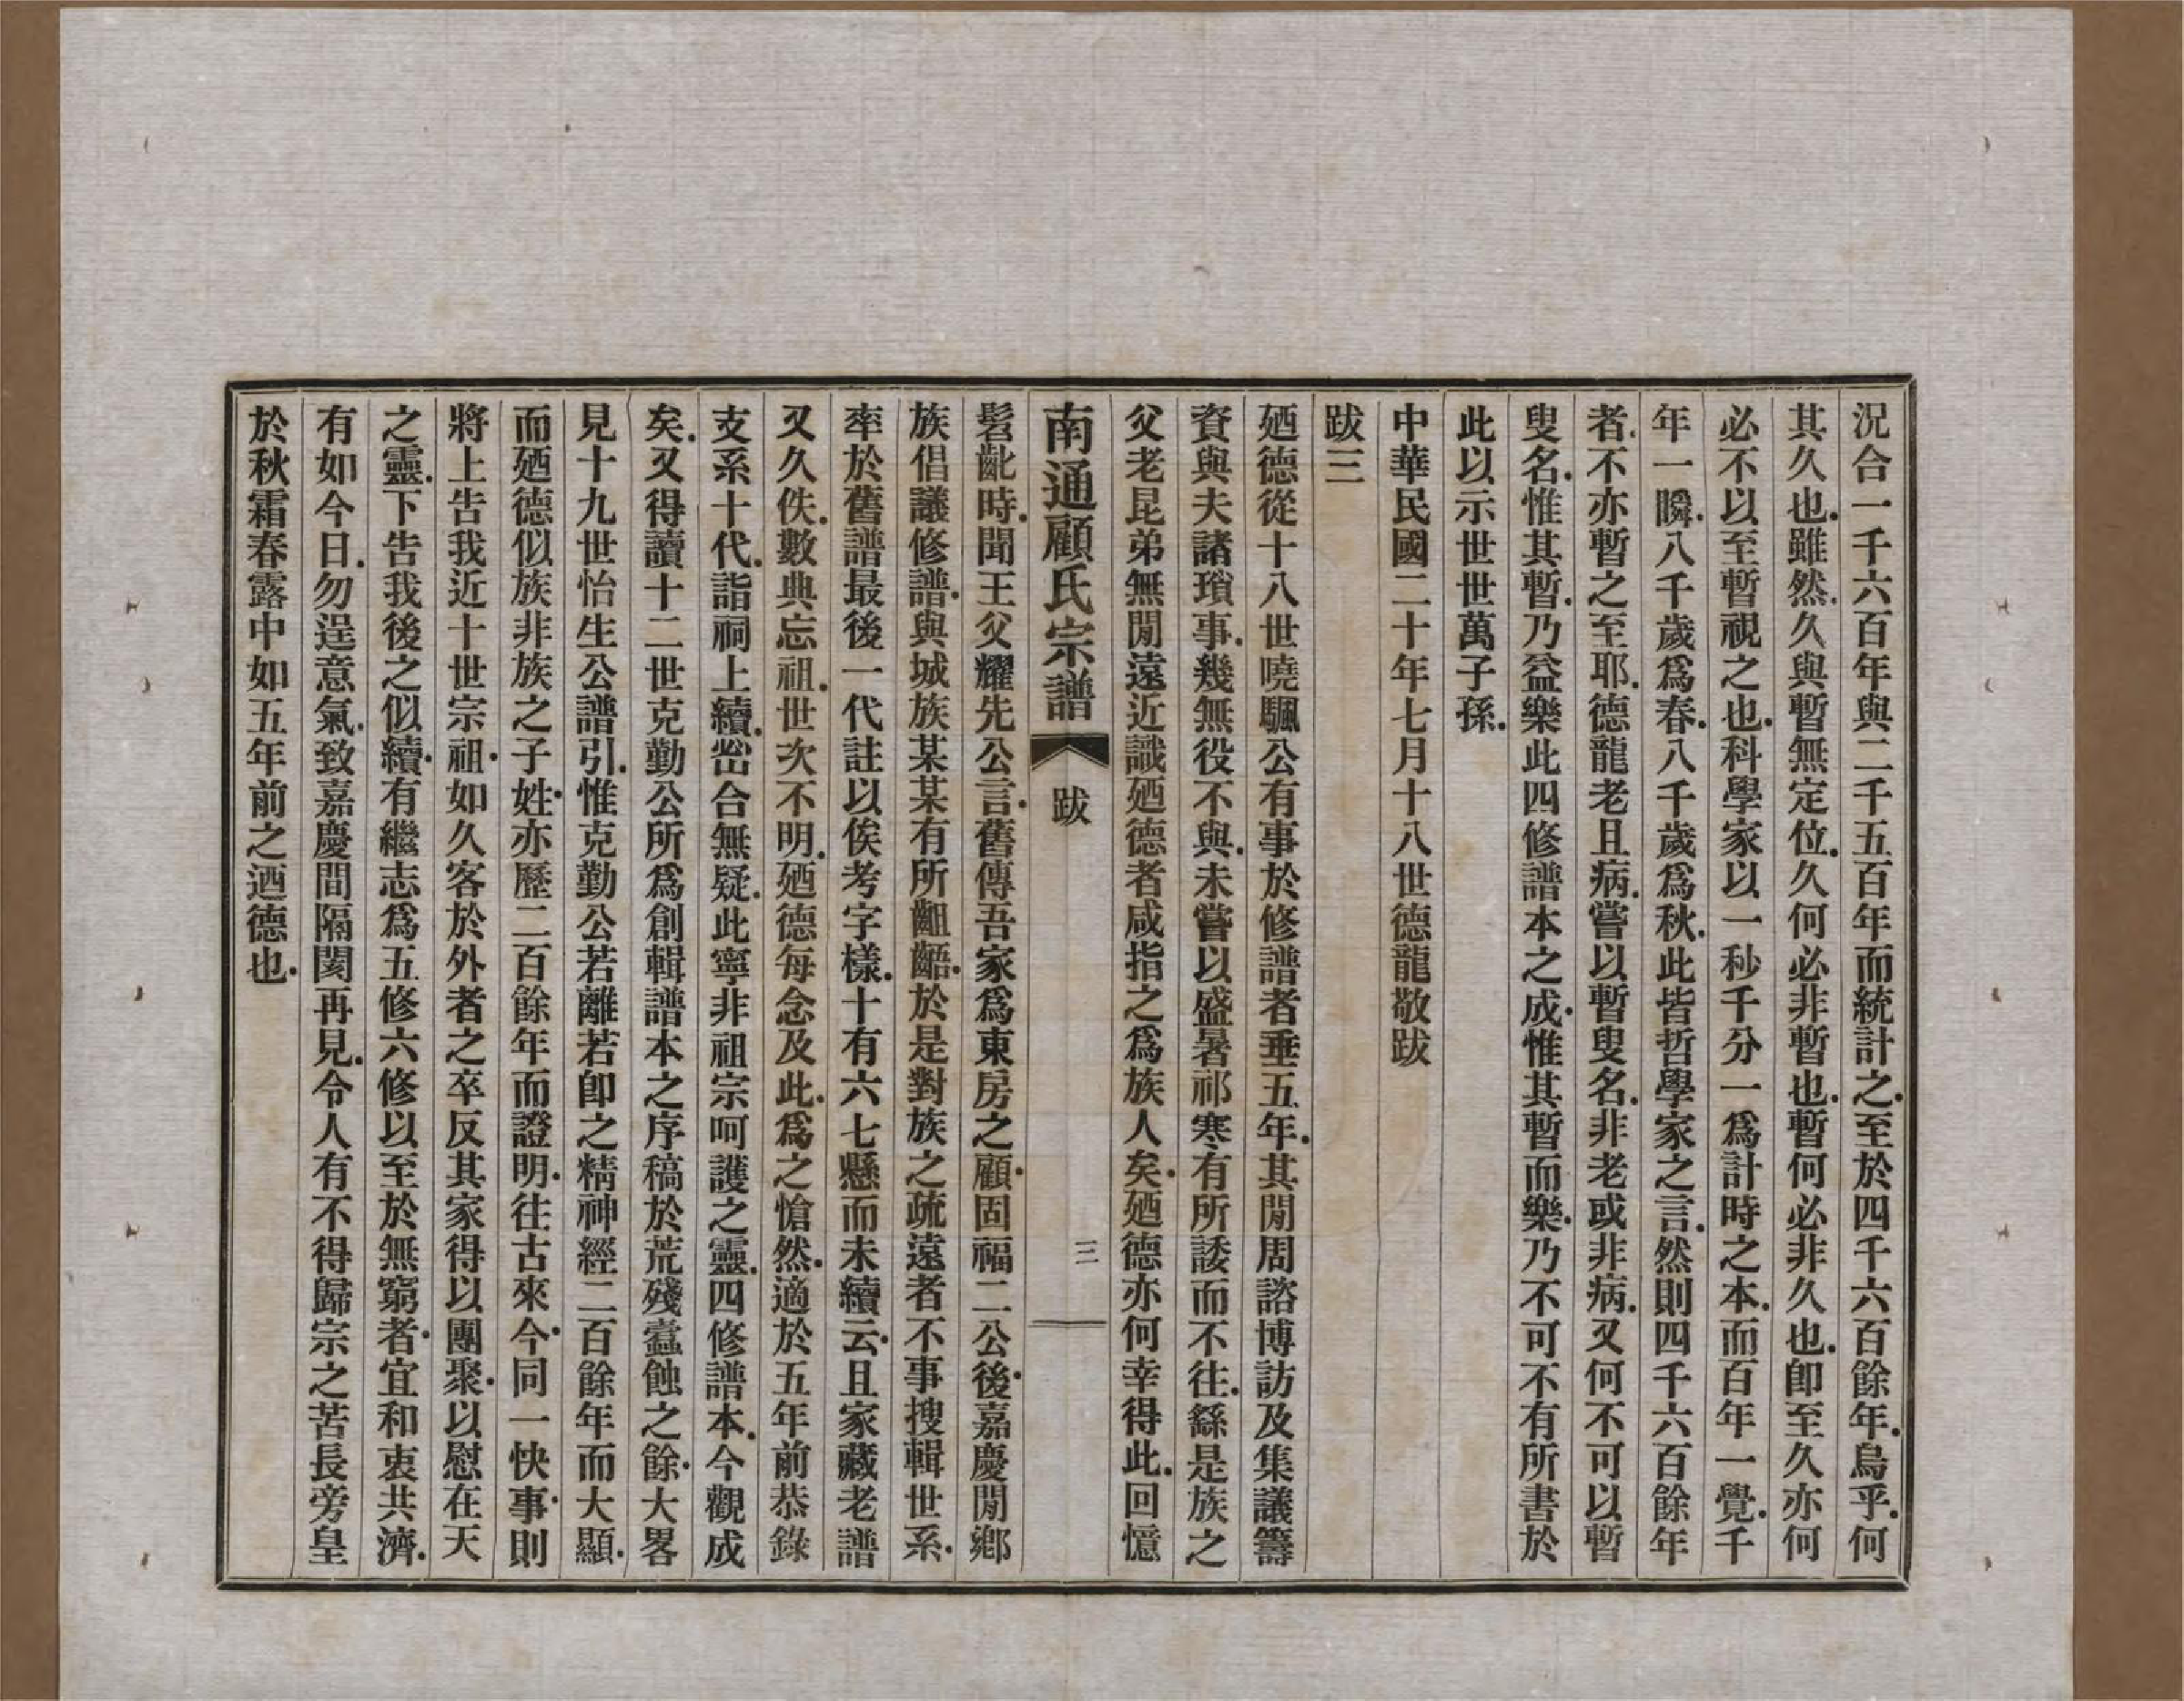 況合一千六百年與二千五百年而統計之.至於四千六百餘年.烏乎.何
其久也.雖然.久與暫無定位.久何必非暫也.暫何必非久也.卽至久亦何
必不以至暫視之也.科學家以一秒千分一爲計時之本.而百年一覺.千
年一瞬.八千歲爲春.八千歲爲秋.此皆哲學家之言.然則四千六百餘年
者.不亦暫之至耶.德龍老且病.嘗以暫叟名.非老或非病.又何不可以暫
叟名.惟其暫.乃益樂此四修譜本之成.惟其暫而樂.乃不可不有所書於
此以示世世萬子孫.
中華民國二十年七月十八世德龍敬跋
跋三
廼德從十八世曉颿公有事於修譜者垂五年.其閒周諮博訪及集議籌
資與夫諸瑣事.幾無役不與.未嘗以盛暑祁寒有所諉而不往.繇是族之
父老昆弟無閒遠近識廼德者咸指之爲族人矣.廼德亦何幸得此.回憶
南通顧氏宗譜 跋 三
髫齔時.聞王父耀先公言.舊傳吾家爲東房之顧.固福二公後.嘉慶閒鄉
族倡議修譜.與城族某某有所齟齬.於是對族之疏遠者不事搜輯世系.
率於舊譜最後一代註以俟考字樣.十有六七懸而未續云.且家藏老譜
又久佚.數典忘祖.世次不明.廼德每念及此.爲之愴然.適於五年前恭錄
支系十代.詣祠上續.喦合無疑.此寧非祖宗呵護之靈.四修譜本.今觀成
矣.又得讀十二世克勤公所爲創輯譜本之序稿於荒殘蠧蝕之餘.大畧
見十九世怡生公譜引.惟克勤公若離若卽之精神經二百餘年而大顯.
而廼德似族非族之子姓.亦歷二百餘年而證明.往古來今.同一快事.則
將上告我近十世宗祖.如久客於外者之卒反其家得以團聚.以慰在天
之靈.下告我後之似續.有繼志爲五修六修以至於無窮者.宜和衷共濟.
有如今日.勿逞意氣.致嘉慶間隔閡再見.令人有不得歸宗之苦長旁皇
於秋霜春露中如五年前之廼德也.